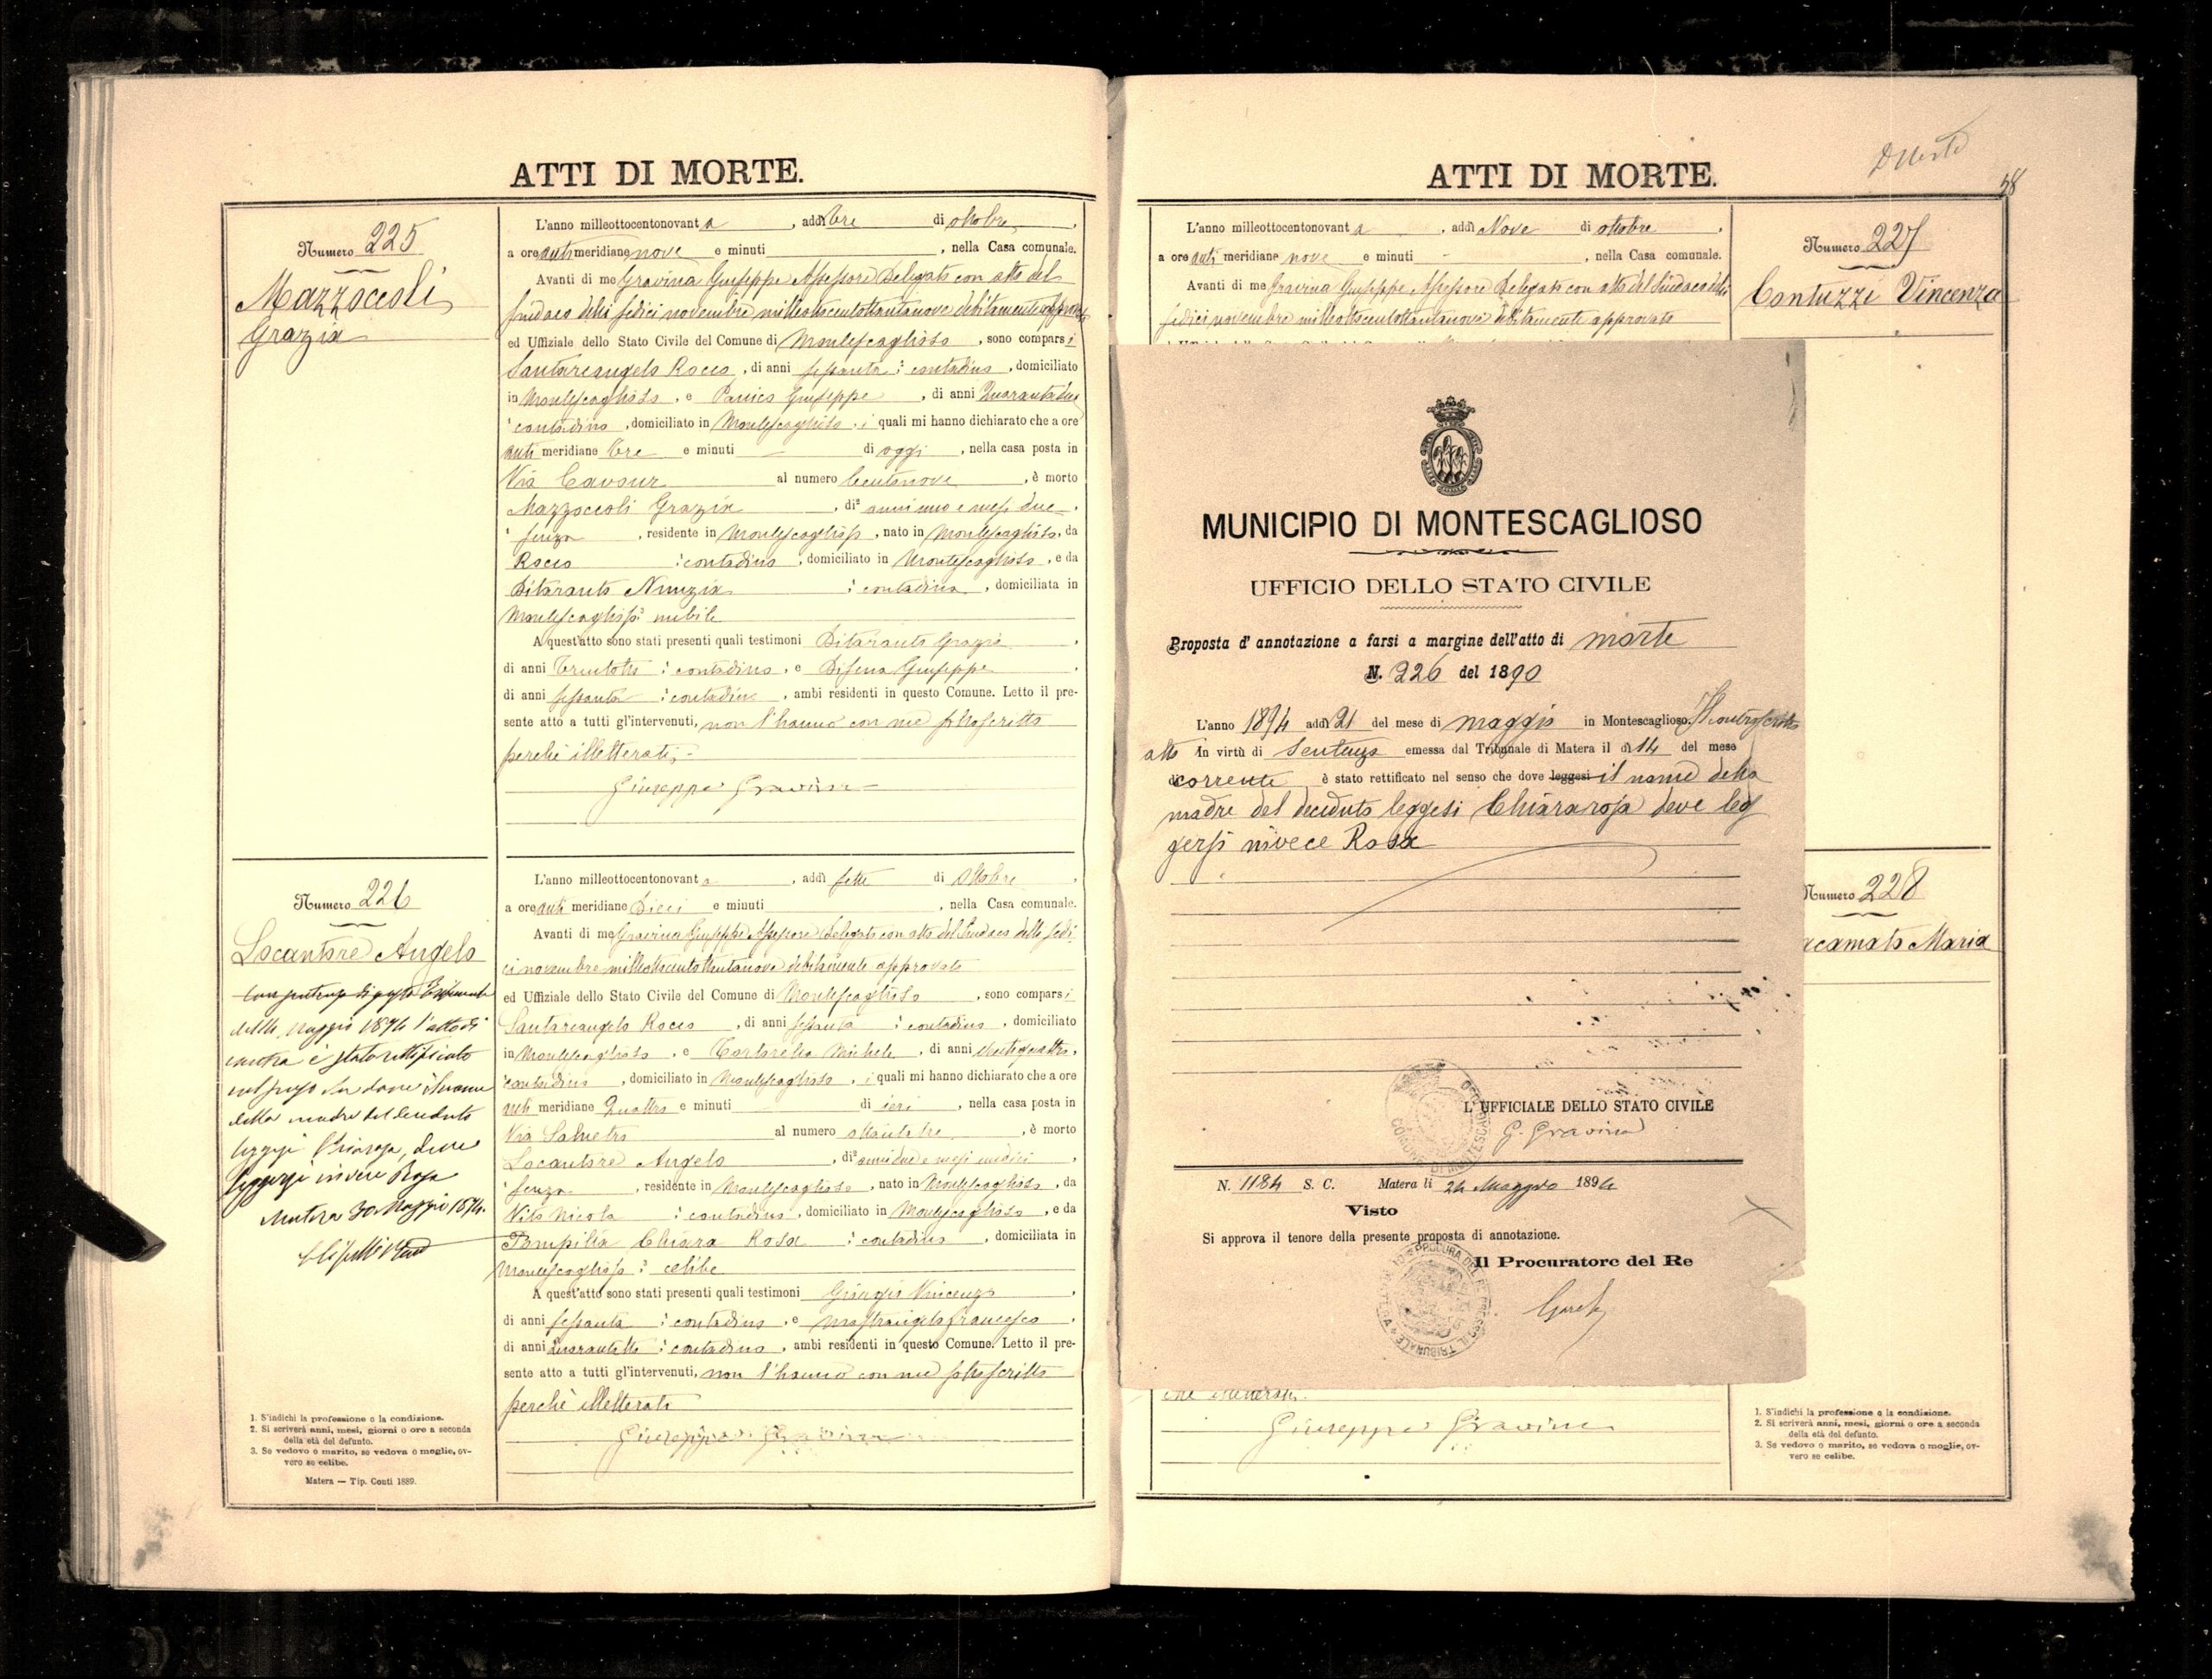 ATTI DI MORTE.
Numero 225
Mazzoccoli
Grazia
L'anno milleottocentonovanta, addì tre di ottobre,
a ore antimeridiane nove e minuti, nella Casa comunale.
Avanti di me Gravina Giuseppe Assessore Delegato con atto del
Sindaco delli sedici novembre milleottocentottantanove debitamente approvato
ed Uffiziale dello Stato Civile del Comune di Montescaglioso, sono comparsi
Santarcangelo Rocco, di anni sessanta: contadino, domiciliato
in Montescaglioso, e Panico Giuseppe, di anni Quarantadue
contadino, domiciliato in Montescaglioso, i quali mi hanno dichiarato che a ore
anti meridiane tre e minuti — di oggi, nella casa posta in
Via Cavour al numero Centonove, è morto
Mazzoccoli Grazia, di² anni uno e mesi due,
senza, residente in Montescaglioso, nato in Montescaglioso, da
Rocco : contadino, domiciliato in Montescaglioso, e da
Ditaranto Nunzia : contadina, domiciliata in
Montescaglioso³ nubile
A quest'atto sono stati presenti quali testimoni Ditaranto Grazio
di anni Trentotto : contadino, e Disena Giuseppe,
di anni sessanta : contadino, ambi residenti in questo Comune. Letto il pre-
sente atto a tutti gl'intervenuti, non l'hanno con me sottoscritto
perchè illetterati,-
Giuseppe Gravina
Numero 226
Locantore Angelo
Con sentenza di questo Tribunale
delli 14 Maggio 1894 l'atto di
contra è stato rettificato
nel senso che dove il nome
della madre del decduto
leggesi Chiarosa, deve
leggersi invece Rosa
Matera 30 Maggio 1894.
L'anno milleottocentonovanta, addì sette di Ottobre,
a ore anti meridiane Dieci e minuti, nella Casa comunale.
Avanti di me Gravina Giuseppe Assessore Delegato con atto del Sindaco delli sedi
ci novembre milleottocentottantanove debitamente approvato
ed Uffiziale dello Stato Civile del Comune di Montescaglioso, sono comparsi
Santarcangelo Rocco, di anni sessanta : contadino, domiciliato
in Montescaglioso, e Tortorella Michele, di anni ventiquattro,
contadino, domiciliato in Montescaglioso, i quali mi hanno dichiarato che a ore
anti meridiane Quattro e minuti di ieri, nella casa posta in
Via Salnetro al numero ottantatre, è morto
Locantore Angelo, di² anni due e mesi undici,
senza, residente in Montescaglioso, nato in Montescaglioso, da
Vito Nicola : contadino, domiciliato in Montescaglioso, e da
Pompilia Chiara Rosa : contadina, domiciliata in
Montescaglioso³ celibe
A quest'atto sono stati presenti quali testimoni Giorgio Vincenzo,
di anni sessanta : contadino, e Mastrangelo Francesco,
di anni Quarantotto : contadino, ambi residenti in questo Comune. Letto il pre-
sente atto a tutti gl'intervenuti, non l'hanno con me sottoscritto
perchè illetterati
Giuseppe Gravina
1. S'indichi la professione o la condizione.
2. Si scriverà anni, mesi, giorni o ore a seconda
della età del defunto.
3. Se vedovo o marito, se vedova o moglie, ov-
vero se celibe.
Matera — Tip. Conti 1889.
ATTI DI MORTE.
58
L'anno milleottocentonovanta, addì Nove di ottobre,
a ore anti meridiane nove e minuti -, nella Casa comunale.
Avanti di me Gravina Giuseppe Assessore Delegato con atto del Sindaco delli
sedici novembre milleottocentottantanove debitamente approvato
Numero 227
Contuzzi Vincenza
MUNICIPIO DI MONTESCAGLIOSO
UFFICIO DELLO STATO CIVILE
Proposta d'annotazione a farsi a margine dell'atto di morte
N. 226 del 1890
L'anno 1894 addì 21 del mese di maggio in Montescaglioso. Il controscritto
atto In virtù di Sentenza emessa dal Tribunale di Matera il dì 14 del mese
di corrente è stato rettificato nel senso che dove leggesi il nome della
madre del deceduto leggesi Chiararosa deve leg
gersi invece Rosa
L'UFFICIALE DELLO STATO CIVILE
G. Gravina
N. 1184 S. C. Matera li 24 Maggio 1894
Visto
Si approva il tenore della presente proposta di annotazione.
Il Procuratore del Re
Numero 228
acamato Maria
che illetterati.
Giuseppe Gravina
1. S'indichi la professione o la condizione.
2. Si scriverà anni, mesi, giorni o ore a seconda
della età del defunto.
3. Se vedovo o marito, se vedova o moglie, ov-
vero se celibe.